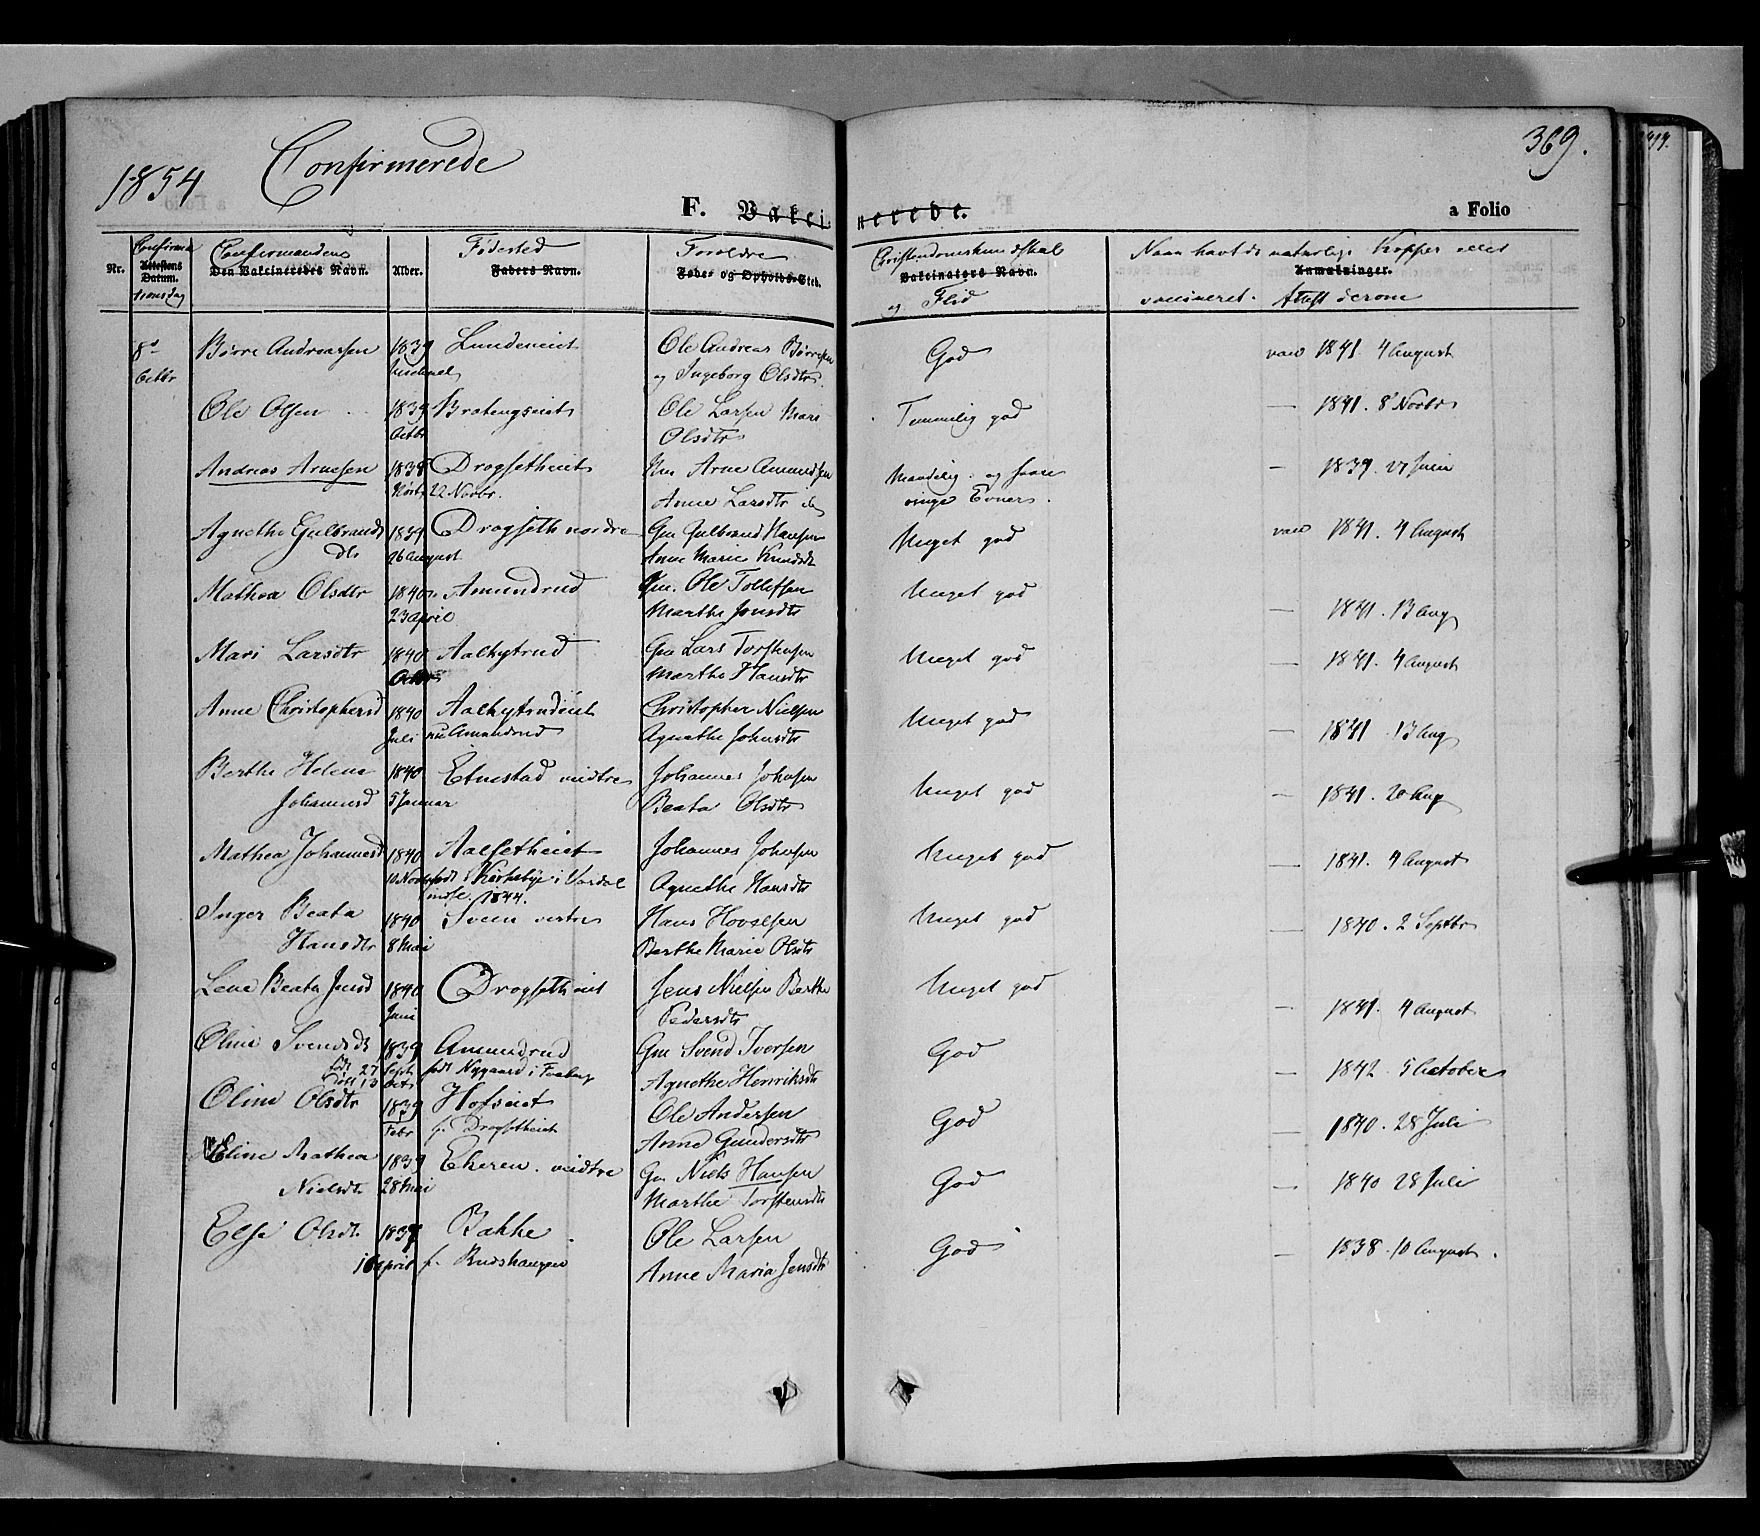 1854 Confirmerede 369.
F. Vakcinerede. a Folio
Nr. Attestens Datum. Confirmandens Den Vakcineredes Navn. Alder. Fødested Faders Navn. Foreldre Fader og Opholds-Sted. Christendomskundskab Vakcinators Navn. og Flid Naar havt de naturlige Kopper eller Anmærkninger. vaccineret. Attest derom
8de Octbr Børre Andreassen 1839 Lundeneiet Ole Andreas Børresen God vacc 1841. 4 August
og Ingeborg Olsdtr.
Ole Olsen 1839 Octbr Bratengseiet Ole Larsen Mari Temmelig god — 1841. 8 Novbr
Olsdtr
Andreas Arnesen 1838 Dragsetheiet Arne Amundsen Maadelig og — 1839. 27 Juni
22 Novbr. Anne Larsdtr ringe Evner.
Agnethe Gulbrands 1839 Dragseth nordre Gm Gulbrand Hansen Meget god vacc 1841. 4 August
dtr 26 August Anne Marie Knudsdt
Mathea Olsdtr 1840 Amundrud Gm. Ole Tollefsen Meget god — 1841. 13 Aug
23 April Marthe Jensdtr
Mari Larsdtr 1840 Aalkytrud Gm Lars Torstensen Meget god — 1841. 4 August
Octbr Marthe Hansdtr
Anne Christophersd 1840 Aalkytrudeiet Christopher Nielsen Meget god — 1841. 13 Aug
Juli nu Amundrud Agnethe Johnsdtr
Berthe Helene 1840 Etnestad midtre Johannes Johnsen Meget god — 1841. 20 Aug
Johannesd 5 Januar Beata Olsdtr
Mathea Johannesd 1840 Aalsetheiet Johannes Johnsen Meget god — 1841. 4 August
10 Novbr født i Kirkebye i Vardal Agnethe Hansdtr
1844.
Inger Beata 1840 Sveen vestre Hans Hovelsen Meget god — 1840. 2 Septbr
Hansdtr 8 Mai Berthe Marie Olsdtr
Lene Beata Jensd 1840 Dragseth eiet Jens Nielsen Berthe Meget god — 1841. 4 August
Juni Pedersdtr
Oline Svendsdt 1839 Amundrud Gm Svend Iversen God — 1842. 5 October
født 27 Sept født Nygaard i Faaberg Agnethe Henriksdt
døbt 13 Oct
Oline Olsdtr 1839 Hofseiet Ole Andersen God — 1840. 28 Juli
Febr f. Dragsetheiet Anne Gundersdtr
Eline Mathea 1839 Ekeren midtre Gm Niels Hansen God — 1840 28 Juli
Nielsdtr 28 Mai Marthe Torstensdtr
Else Olsdtr Bakke Ole Larsen God — 1838. 10 August.
April f. Rudshaugen Anne Maria Jensdtr